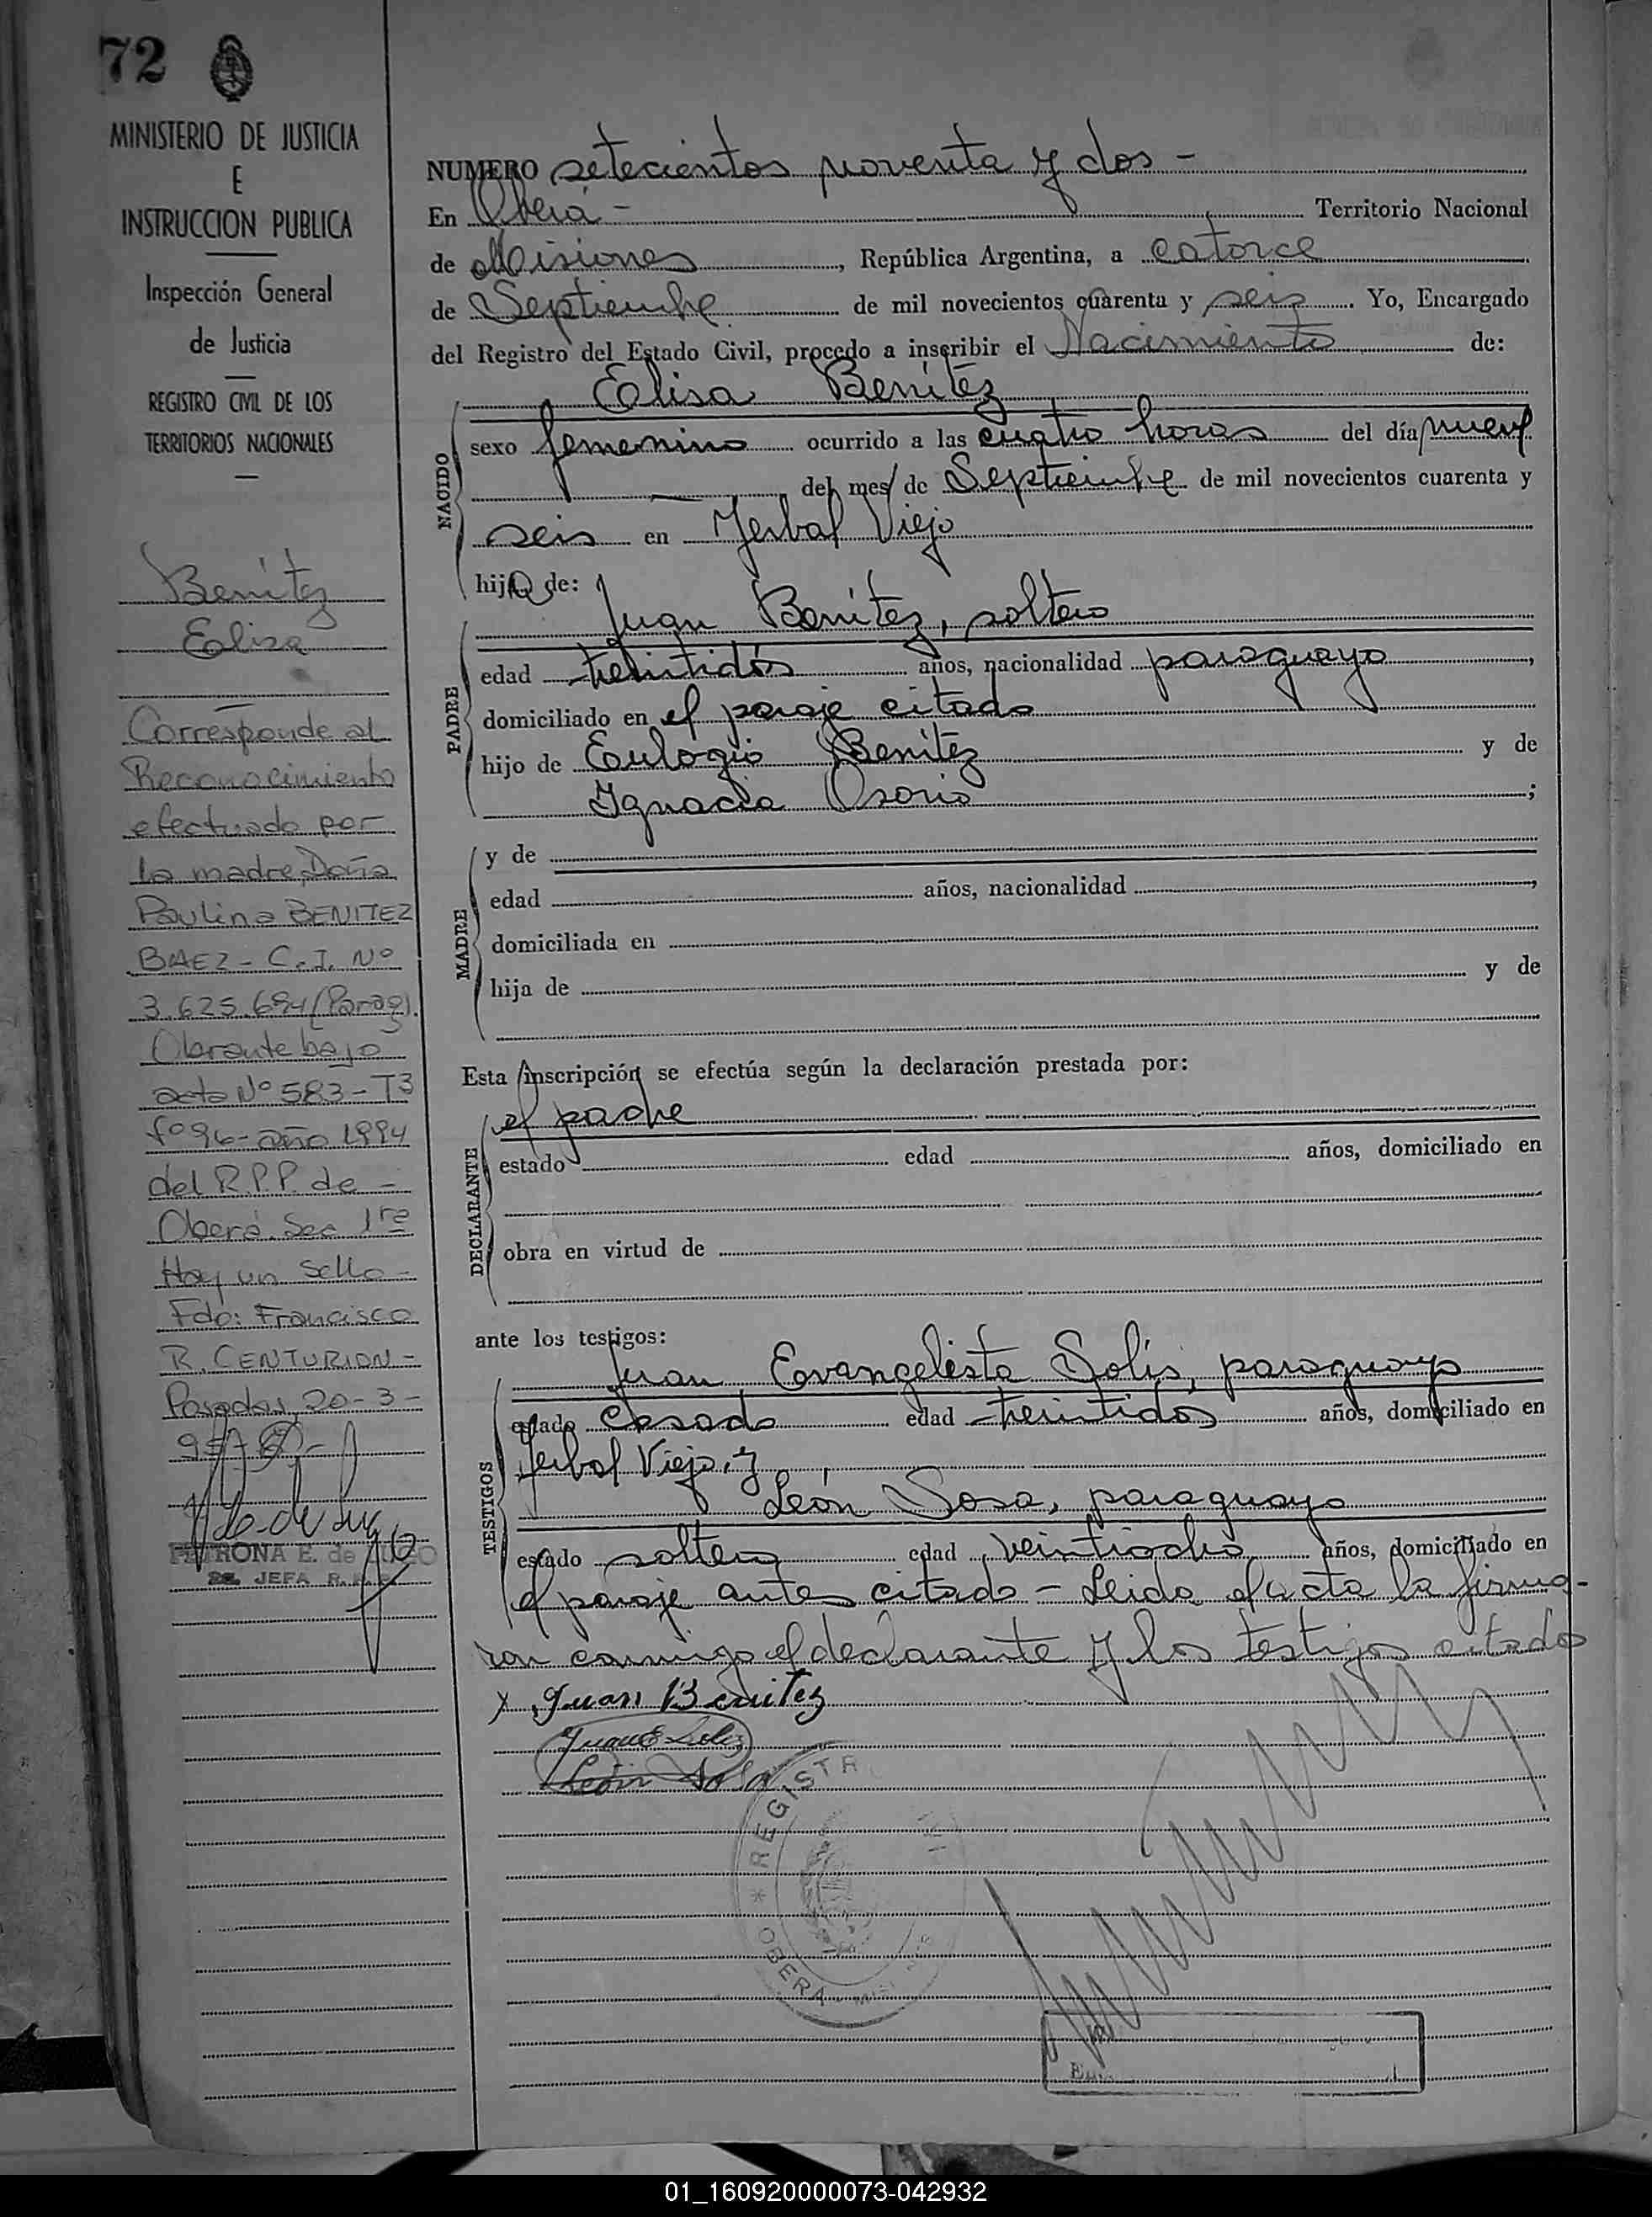 72
MINISTERIO DE JUSTICIA
E
INSTRUCCION PUBLICA
Inspección General
de Justicia
REGISTRO CIVIL DE LOS
TERRITORIOS NACIONALES
Benítez
Elisa
Corresponde al
Reconocimiento
efectuado por
la madre, Doña
Paulina BENITEZ
BAEZ - C.I. Nº
3.625.694 (Parag).
Obrante bajo
acta Nº 583 - T3
fº 96 - año 1994
del R.P.P. de -
Oberá. Sec 1ra
Hay un Sello -
Fdo: Francisco
R. CENTURION -
Posadas, 20-3-
PETRONA E. de
JEFA R.P.P.
NUMERO setecientos noventa y dos -
En Oberá - Territorio Nacional
de Misiones, República Argentina, a catorce
de Septiembre de mil novecientos cuarenta y seis. Yo, Encargado
del Registro del Estado Civil, procedo a inscribir el Nacimiento de:
Elisa Benítez
NACIDO
sexo femenino ocurrido a las cuatro horas del día nueve
— del mes de Septiembre de mil novecientos cuarenta y
seis en Yerbal Viejo
hija de:
Juan Benítez, soltero
PADRE
edad treintidós años, nacionalidad paraguayo,
domiciliado en el paraje citado
hijo de Eulogio Benítez y de
Ignacia Osorio;
MADRE
y de
edad años, nacionalidad,
domiciliada en
hija de y de
Esta inscripción se efectúa según la declaración prestada por:
el padre
DECLARANTE
estado edad años, domiciliado en
obra en virtud de
ante los testigos:
Juan Evangelista Solís, paraguayo
TESTIGOS
estado casado edad treintidós años, domiciliado en
Yerbal Viejo, y
León Sosa, paraguayo
estado soltero edad veintiocho años, domiciliado en
el paraje antes citado - Leida el acta la firma-
ron conmigo el declarante y los testigos citados
x Juan Benitez
Juan E Solis
León Sosa
REGISTR
* OBERA - MISIONES
01_160920000073-042932